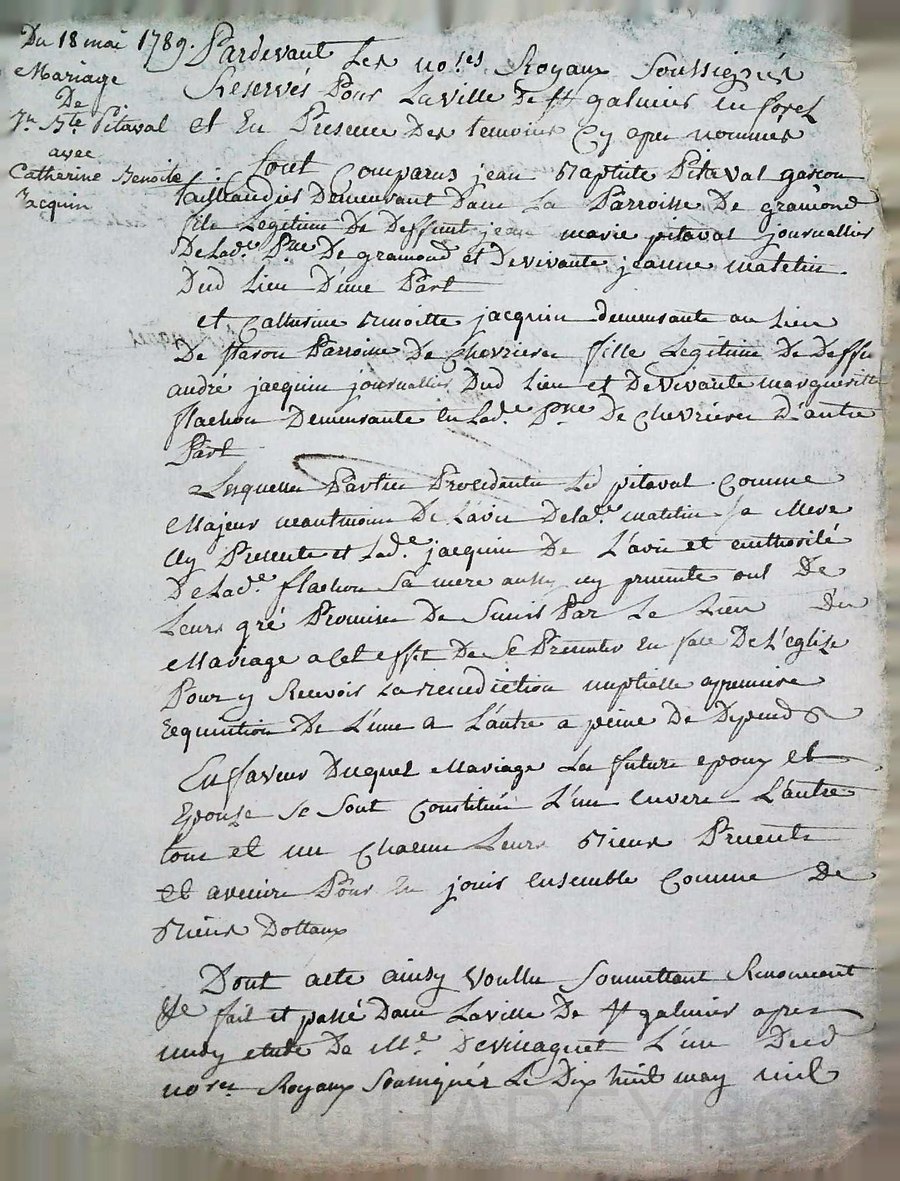 Du 18 mai 1789.
Mariage
De
Jn. Bte Pitaval
avec
Catherine Benoite
Jacquin
Pardevant Les nores Royaux Soussignés
Reservés Pour La ville De St galmier en forez
et En Presence Des temoins Cy apres nommés
Sont Comparus jean Baptiste Pitaval garcon
taillandier Demeurant Dans La Parroisse De gramond
fils Legitime De Deffunt jean marie pitaval journallier
De Lade. Psse De gramond et De vivante jeanne matelin
Dud Lieu D'une Part
et Catherine Benoitte jacquin demeurante au Lieu
De flaron Parroisse De Chevrieres fille Legitime De Deffu
andré jacquin journallier Dud Lieu et De Vivante margueritte
flachon Demeurante en Lade. Psse De Chevrieres D'autre
Part
Lesquelles Parties Procedantes Led pitaval Comme
Majeur neantmoins De Lavis De lade. matelin sa Mere
Cy Presente et Lade. jacquin De L'avis et authorité
De Lade. flachon sa mere aussy cy presente ont De
Leurs gré Promises De S'unir Par Le Lien Du
Mariage a Cet effet De Se Presenter En face De L'église
Pour y Recevoir La Benediction nuptialle a premiere
Requisition De L'une a L'autre a peine De Depends
En faveur Duquel Mariage Les futurs epoux et
Epouse se sont Constitués L'un envers L'autre
tous et un Chacun Leurs Biens Presents
et avenirs Pour En jouir ensemble Comme De
Biens Dottaux
Dont acte ainsy Voullu Soumettant Renoncent
&c fait et passé Dans La ville De St galmier apres
midy etude De Me. Devinaquet L'un Desd
nores Royaux Soussignés Le Dix huit may mil